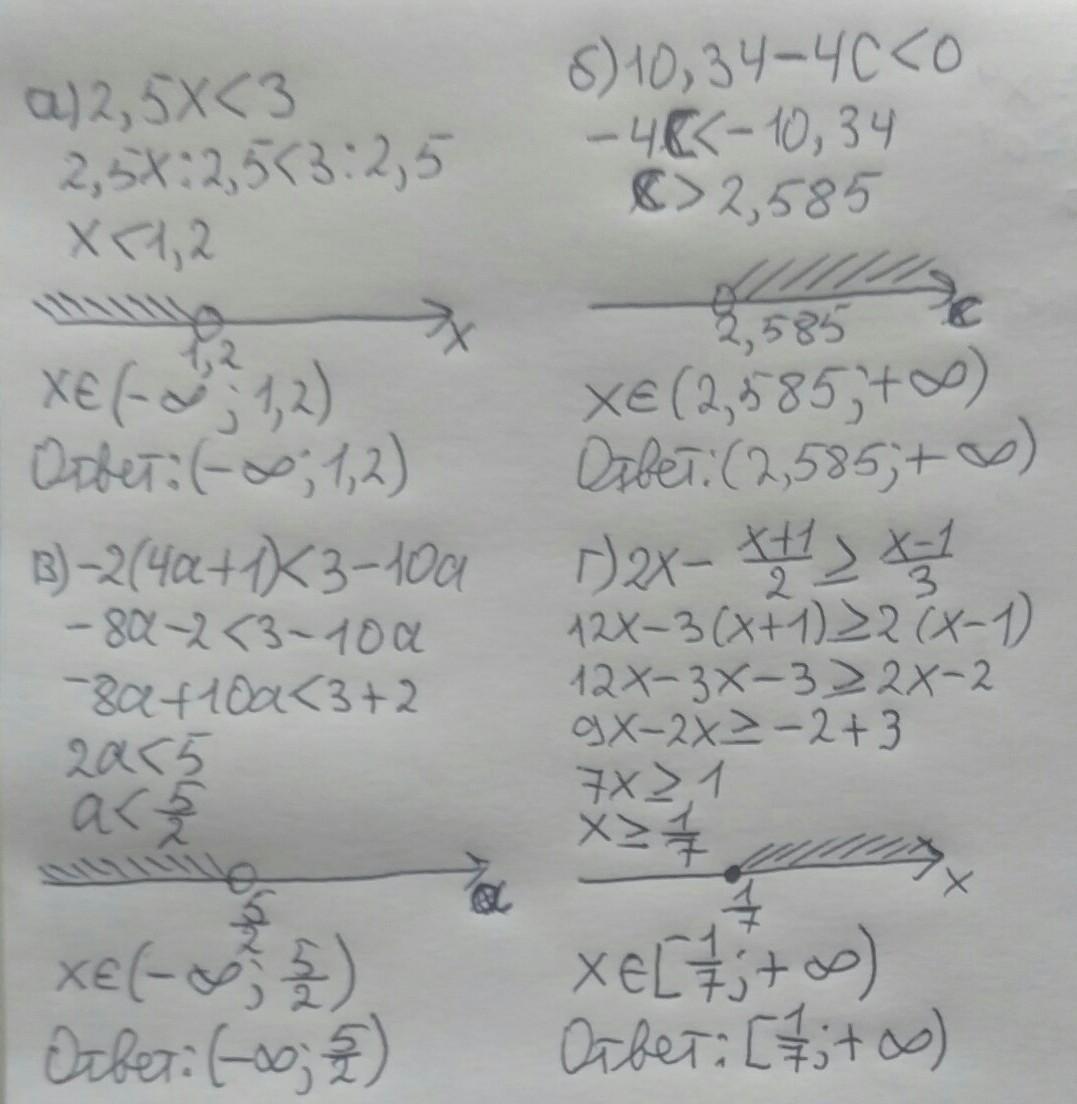 а) 2,5x<3
2,5x:2,5<3:2,5
x<1,2
1,2
x
x∈(-∞; 1,2)
Ответ: (-∞; 1,2)
б) 10,34-4C<0
-4C<-10,34
C>2,585
2,585
C
x∈(2,585; +∞)
Ответ: (2,585; +∞)
в) -2(4a+1)<3-10a
-8a-2<3-10a
-8a+10a<3+2
2a<5
a<5/2
5/2
a
x∈(-∞; 5/2)
Ответ: (-∞; 5/2)
г) 2x - (x+1)/2 ≥ (x-1)/3
12x-3(x+1)≥2(x-1)
12x-3x-3≥2x-2
9x-2x≥-2+3
7x≥1
x≥1/7
1/7
x
x∈[1/7; +∞)
Ответ: [1/7; +∞)